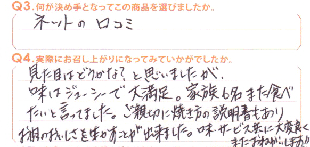 Q3.何が決め手となってこの商品を選びましたか。
ネットの口コミ
Q4.実際にお召し上がりになってみていかがでしたか。
見た目はどうかな?と思いましたが、
味はジューシーで大満足。家族6名また食べ
たいと言ってました。ご親切に焼き方の説明書もあり
お肉のおいしさを生かすことが出来ました。味・サービス共に大変良く
またおねがいします